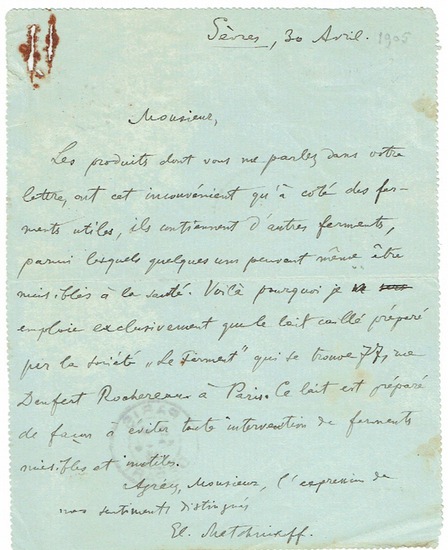 Sèvres, 30 Avril. 1905
Monsieur,
Les produits dont vous me parlez dans votre
lettre, ont cet inconvénient qu'à coté des fer-
ments utiles, ils contiennent d'autres ferments,
parmi lesquels quelques uns peuvent même être
nuisibles à la santé. Voilà pourquoi je
emploie exclusivement que le lait caillé préparé
par la société „Le Ferment" qui se trouve 77, rue
Denfert Rochereau à Paris. Ce lait est préparé
de façon à éviter toute intervention de ferments
nuisibles et inutiles.
Agréez, Monsieur, l'expression de
mes sentiments distingués
El. Metchnikoff